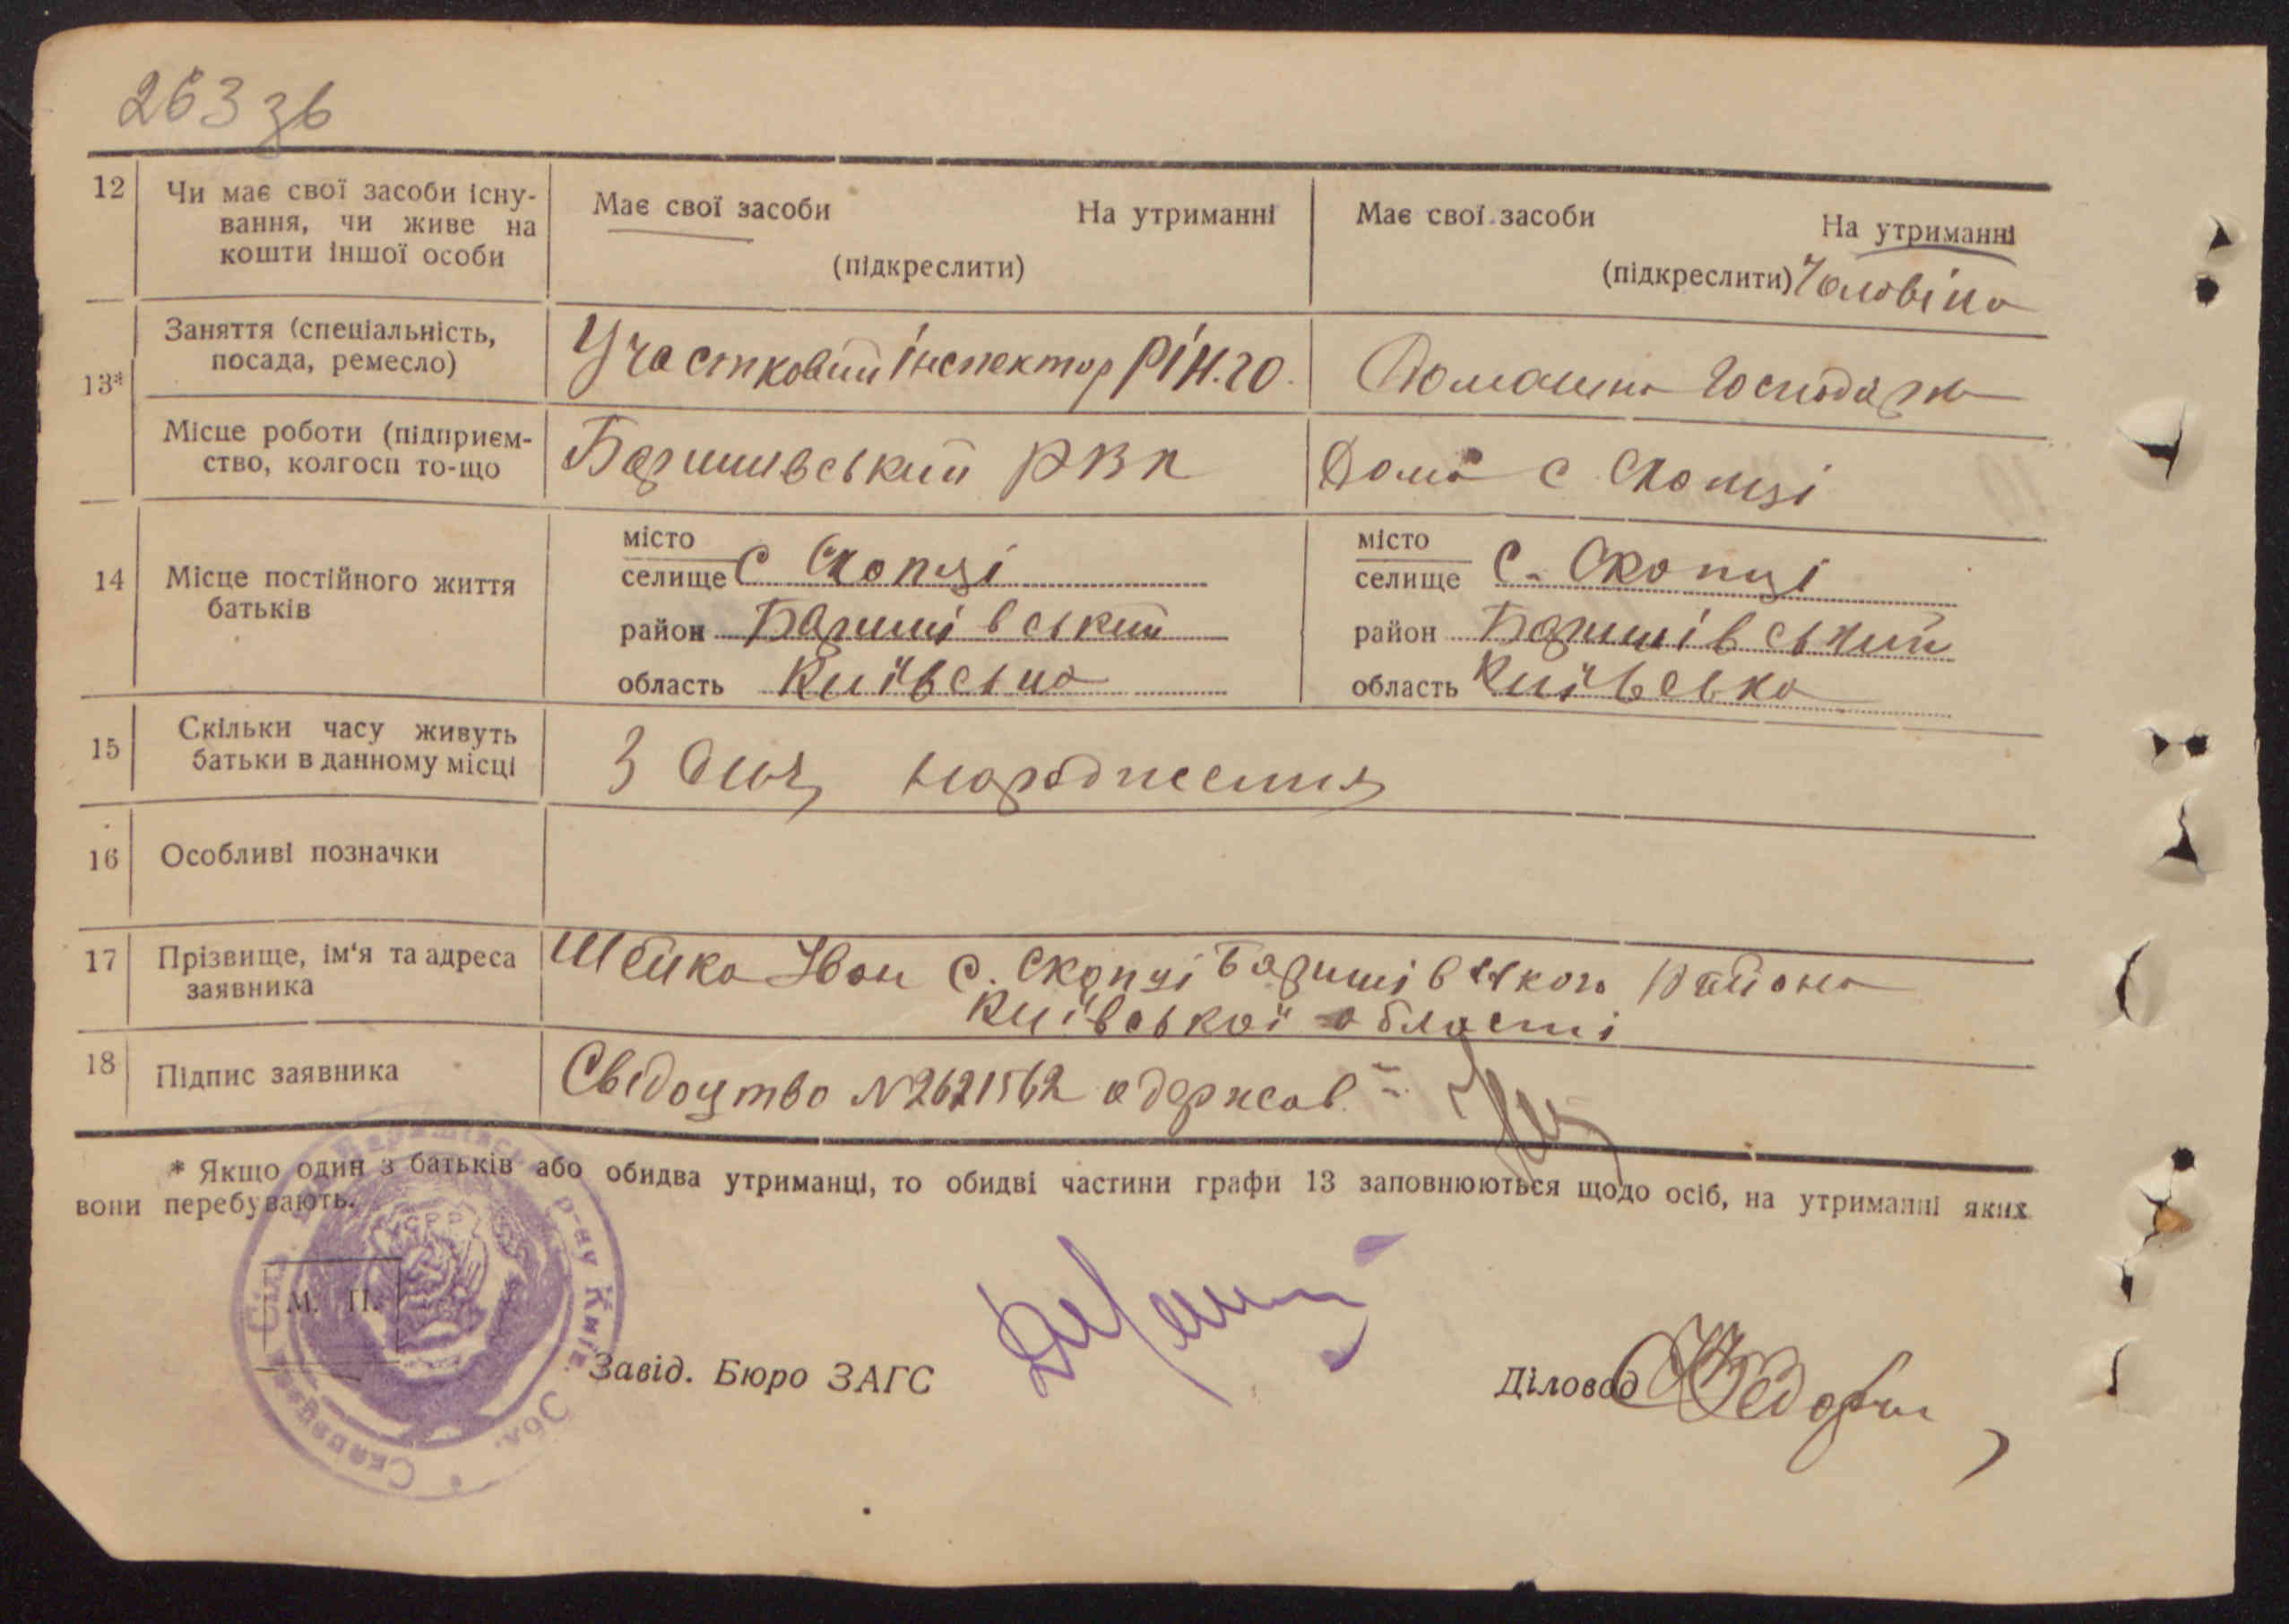 263 зв
12 Чи має свої засоби існу-
вання, чи живе на
кошти іншої особи
Має свої засоби На утриманні
(підкреслити)
Має свої засоби На утриманні
(підкреслити) Чоловіка
13* Заняття (спеціальність,
посада, ремесло)
Участковий інспектор
Домашня господарка
Місце роботи (підприєм-
ство, колгосп то-що
Баришивський РВК
Дома с Скопці
14 Місце постійного життя
батьків
місто
селище с Скопці
район Баришівський
область Київська
місто
селище с. Скопці
район Баришівський
область Київська
15 Скільки часу живуть
батьки в данному місці
З дня народження
16 Особливі позначки
17 Прізвище, ім'я та адреса
заявника
Шейко Іван с. Скопці Баришівського района
Київської області
18 Підпис заявника
Свідоцтво №2621562 одержав
* Якщо один з батьків або обидва утриманці, то обидві частини графи 13 заповнюються щодо осіб, на утриманні яких
вони перебувають.
М. П.
р-ну Київ. Обл.
Завід. Бюро ЗАГС
Діловод